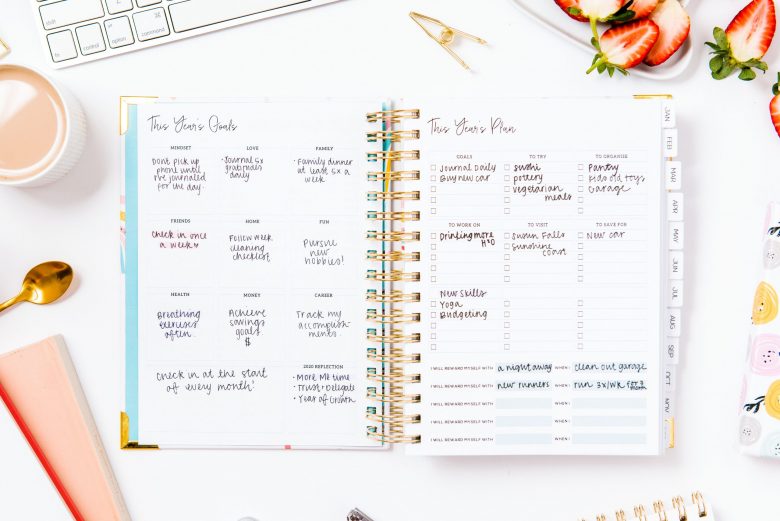 control
option
command
This Year's Goals
MINDSET
Dont pick up
phone until
I've journaled
for the day.
LOVE
• Journal 5x
gratitudes
daily
FAMILY
• Family dinner
at least 5x a
week
FRIENDS
Check in once
a week ♥
HOME
Follow week
cleaning
checklist
FUN
Pursue
new
hobbies!
HEALTH
Breathing
exercises
often.
MONEY
Achieve
savings
goals.
$
CAREER
Track my
accomplish-
ments.
Check in at the start
of every month!
2020 REFLECTION
• More Me time
• Trust + Delegate
• Year of Growth
This Year's Plan
GOALS
Journal Daily
Buy new car
TO TRY
sushi
pottery
vegetarian
meals
TO ORGANISE
Pantry
kids old toys
Garage
TO WORK ON
Drinking more
H2O
TO VISIT
Falls
Sunshine
coast
TO SAVE FOR
New car
New Skills
Yoga
Budgeting
I WILL REWARD MYSELF WITH a night away WHEN I clean out garage
I WILL REWARD MYSELF WITH new runners WHEN I run 3x/wk for 3 month
I WILL REWARD MYSELF WITH WHEN I
I WILL REWARD MYSELF WITH WHEN I
I WILL REWARD MYSELF WITH WHEN I
JAN
FEB
MAR
APR
MAY
JUN
JUL
AUG
SEP
OCT
NOV